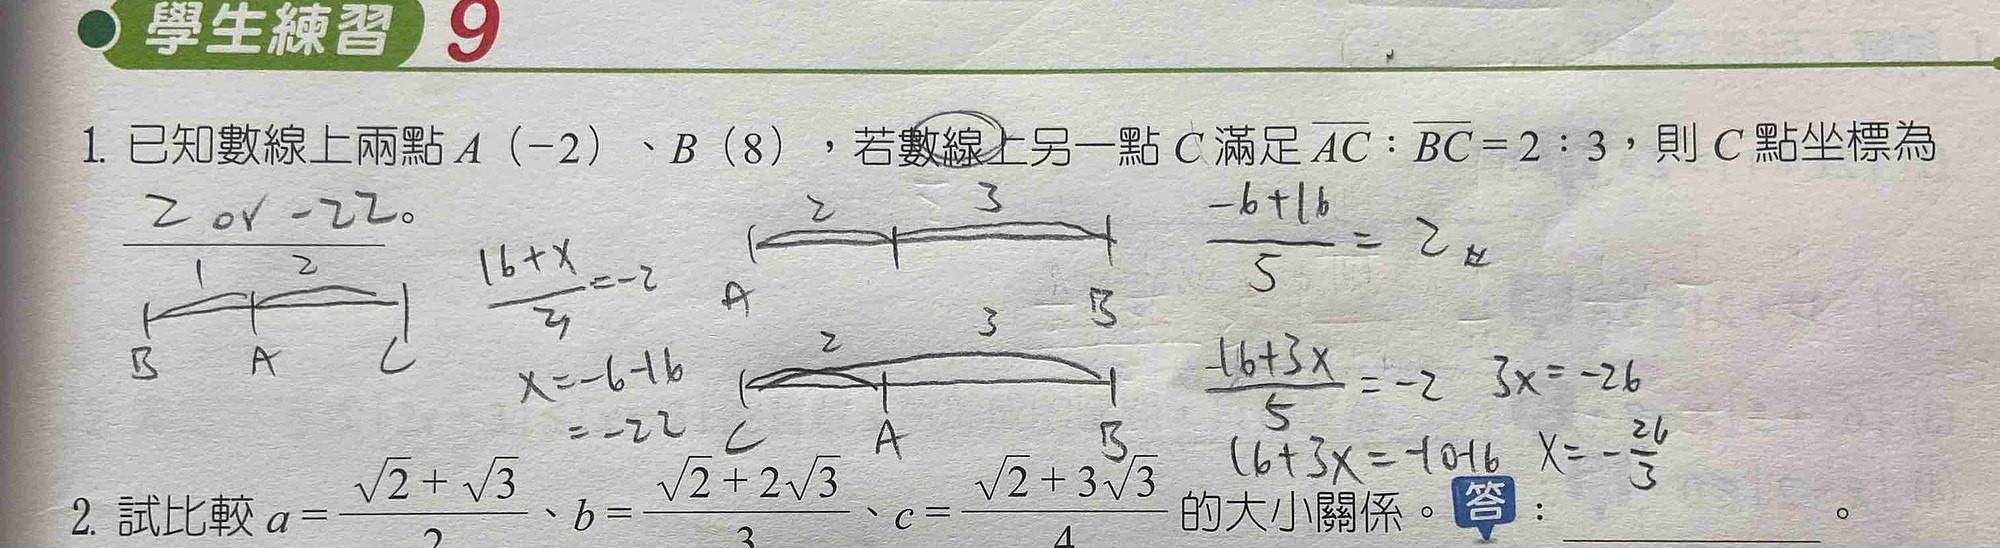 學生練習 9
1. 已知數線上兩點 A（-2）、B（8），若數線上另一點 C 滿足 AC：BC = 2：3，則 C 點坐標為
2 or -22。
1 2
B A C
16+x / 3 = -2
x = -6-16
= -22
2 3
A B
-6+16 / 5 = 2
2 3
C A B
16+3x / 5 = -2 3x = -26
16+3x = -10-16 x = -26/3
2. 試比較 a = √2+√3 / 2、b = √2+2√3 / 3、c = √2+3√3 / 4 的大小關係。答：。